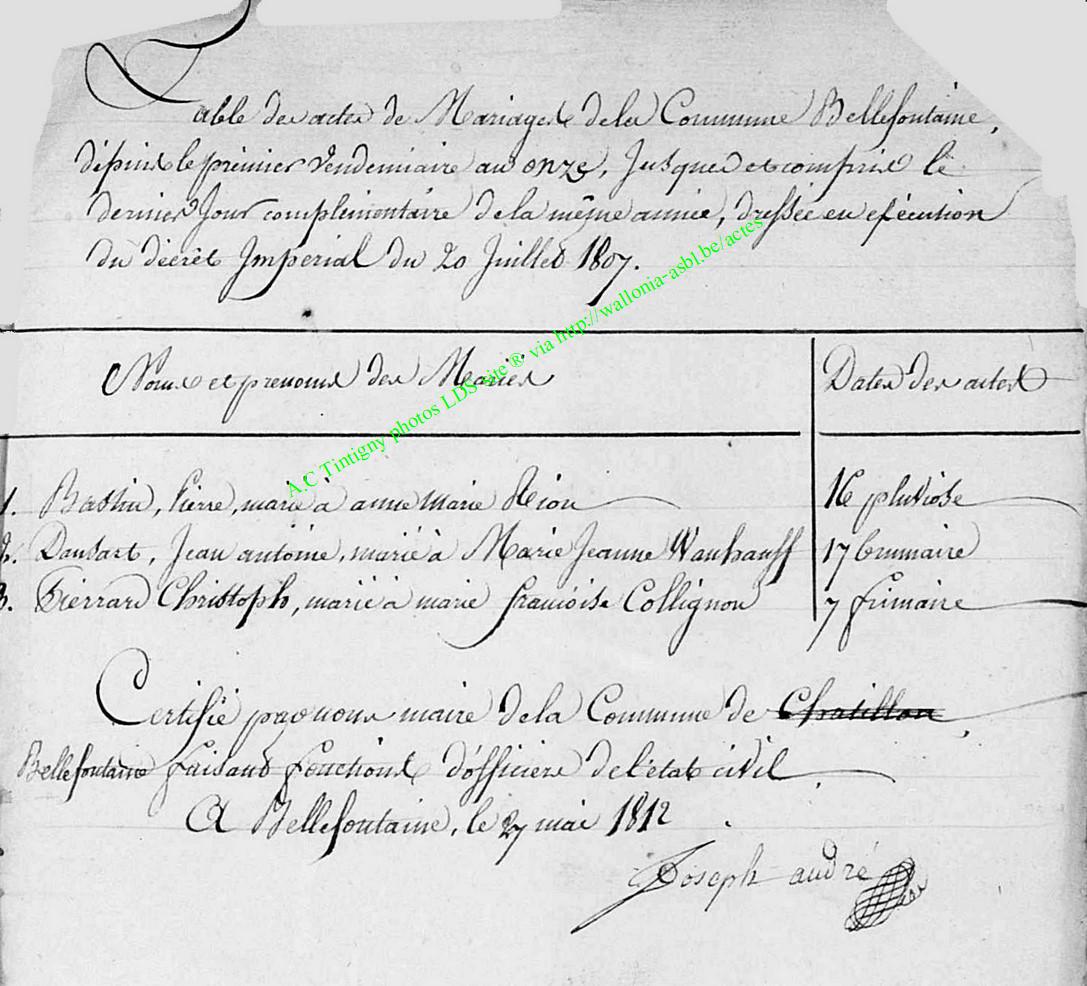 Table des actes de Mariages de la Commune Bellefontaine,
dépuis le prémier vendemiaire an onze, Jusques et compris le
dernier Jour complimentaire de la même année, dressée en exécution
du décret Impérial du 20 Juillet 1807.
Noms et prenoms des Mariés
Dates des actes
1. Bastin, Pierre, marié à anne marie Rion
16 pluviose
2. Dansart, Jean antoine, marié à Marie Jeanne Wanhauff
17 brumaire
3. Fierrard Christoph, marié à marie francoise Collignon
7 frimaire
Certifié par nous maire de la Commune de Chatillon
Bellefontaine faisant fonctions d'officiere de l'état civil
A Bellefontaine, le 27 mai 1812
Joseph andré
A.C Tintigny photos LDS site ® via http://wallonia-asbl.be/actes